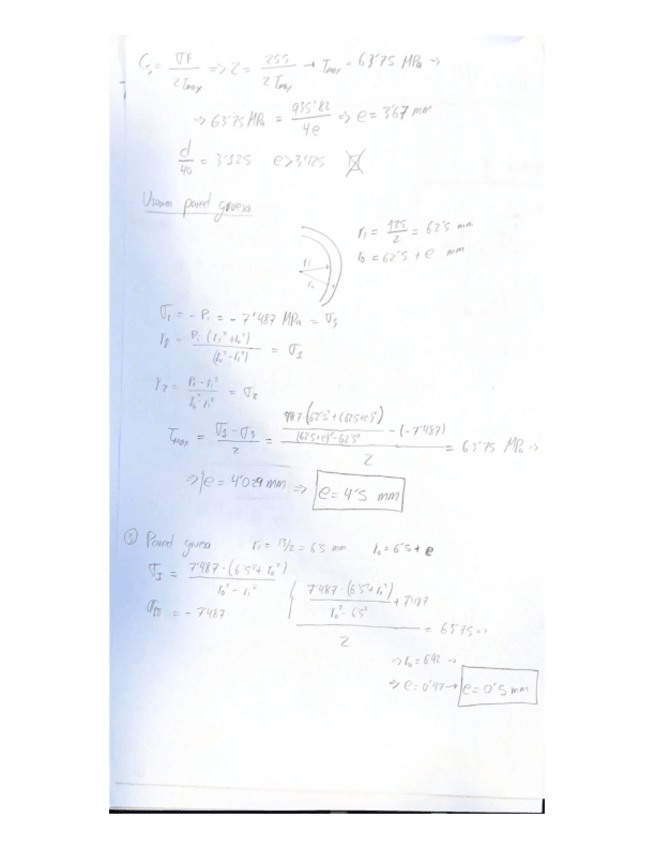 Cs = σF / 2 τmax => 2 = 255 / 2 τmax → τmax = 63'75 MPa =>
=> 63'75 MPa = 935'82 / 4e => e = 3'67 mm
d/40 = 3'125 e > 3'125
Usamos pared gruesa
ri = 125/2 = 62'5 mm
r0 = 62'5 + e mm
ri
r0
σr = - Pi = - 7'487 MPa = σ3
= Pi (ri² + r0²) / (r0² - ri²) = σ1
= Pi · ri² / r0² - ri² = σ2
τmax = σ1 - σ3 / 2 = 7'487 · (62'5² + (62'5+e)²) / (62'5+e)² - 62'5² - (-7'487) / 2 = 63'75 MPa =>
=> e = 4'029 mm => e = 4'5 mm
Pared gruesa ri = 13/2 = 6'5 mm r0 = 6'5 + e
σI = 7'487 · (6'5² + r0²) / r0² - ri²
σIII = - 7'487
7'487 · (6'5² + r0²) / r0² - 6'5² + 7'487 / 2 = 63'75 =>
=> r0 = 6'92 →
=> e = 0'42 → e = 0'5 mm